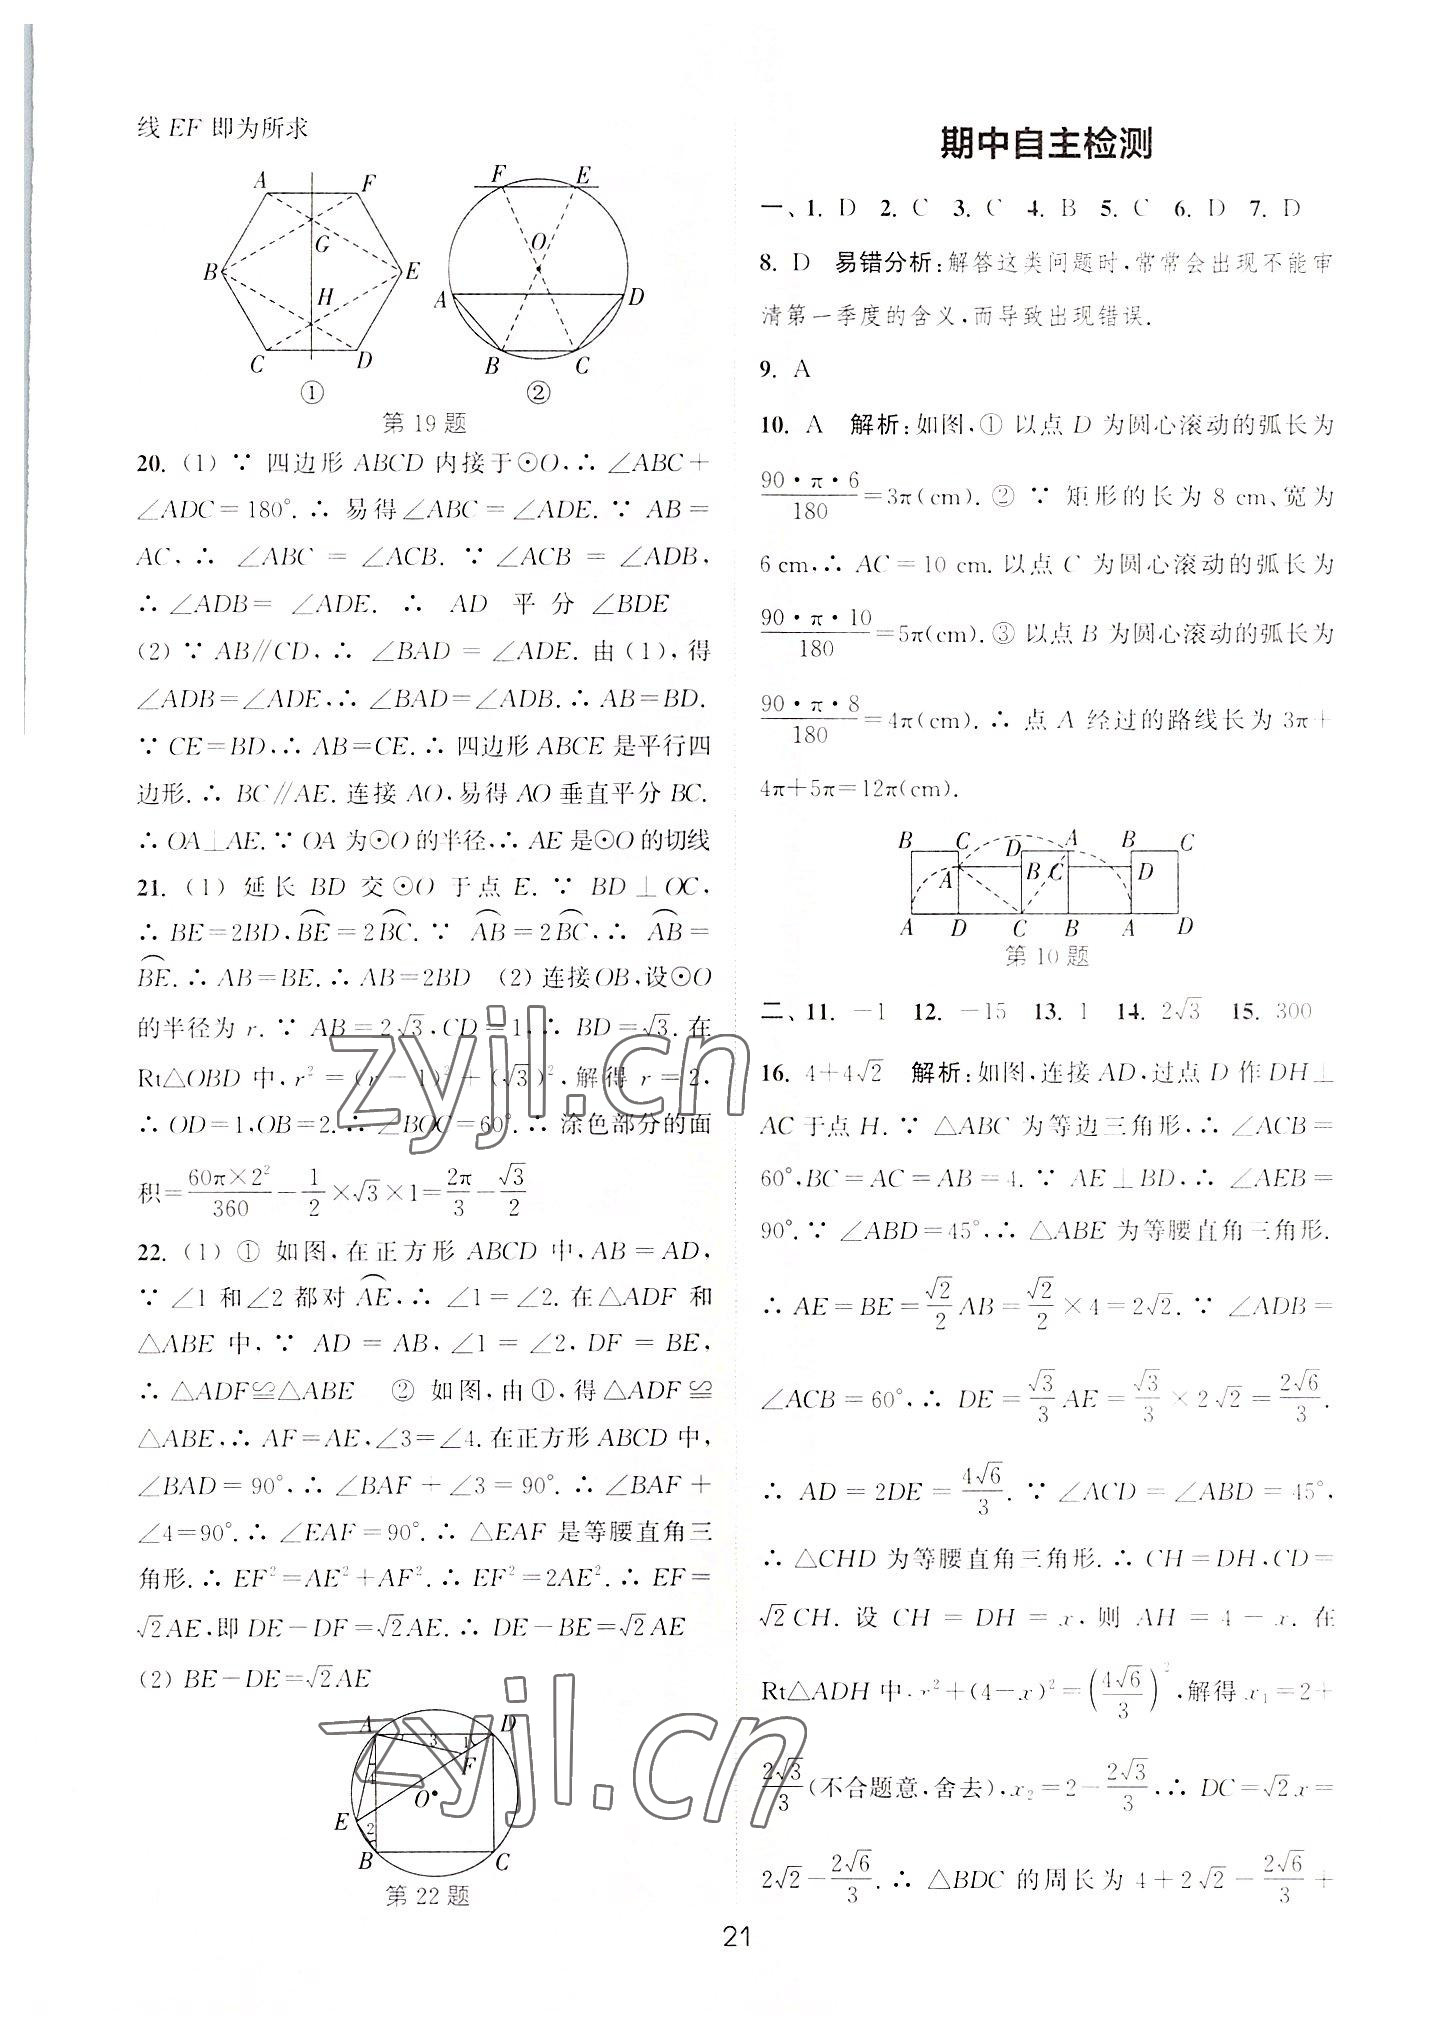 线 EF 即为所求
A F G B E H C D ①
F E O A D B C ②
第 19 题
20. (1) ∵ 四边形 ABCD 内接于⊙O,∴ ∠ABC+
∠ADC=180°. ∴ 易得∠ABC=∠ADE. ∵ AB=
AC,∴ ∠ABC = ∠ACB. ∵ ∠ACB = ∠ADB,
∴ ∠ADB= ∠ADE. ∴ AD 平分 ∠BDE
(2) ∵ AB∥CD,∴ ∠BAD = ∠ADE. 由 (1),得
∠ADB=∠ADE,∴ ∠BAD=∠ADB. ∴ AB=BD.
∵ CE=BD,∴ AB=CE. ∴ 四边形 ABCE 是平行四
边形. ∴ BC∥AE. 连接 AO,易得 AO 垂直平分 BC.
∴ OA⊥AE. ∵ OA 为⊙O 的半径,∴ AE 是⊙O 的切线
21. (1) 延长 BD 交 ⊙O 于点 E. ∵ BD⊥OC,
∴ BE=2BD,⌒BE=2⌒BC. ∵ ⌒AB=2⌒BC,∴ ⌒AB=
⌒BE. ∴ AB=BE. ∴ AB=2BD (2) 连接 OB,设⊙O
的半径为 r. ∵ AB=2√3,CD=1,∴ BD=√3. 在
Rt△OBD 中,r²=(r−1)²+(√3)²,解得 r=2,
∴ OD=1,OB=2. ∴ ∠BOC=60°. ∴ 涂色部分的面
积=60π×2²/360−1/2×√3×1=2π/3−√3/2
22. (1) ① 如图,在正方形 ABCD 中,AB=AD,
∵ ∠1 和∠2 都对 ⌒AE,∴ ∠1=∠2. 在△ADF 和
△ABE 中,∵ AD = AB,∠1 = ∠2,DF = BE,
∴ △ADF≌△ABE ② 如图,由①,得△ADF≌
△ABE,∴ AF=AE,∠3=∠4. 在正方形 ABCD 中,
∠BAD=90°,∴ ∠BAF+∠3=90°. ∴ ∠BAF+
∠4=90°. ∴ ∠EAF=90°. ∴ △EAF 是等腰直角三
角形. ∴ EF²=AE²+AF². ∴ EF²=2AE². ∴ EF=
√2AE,即 DE−DF=√2AE. ∴ DE−BE=√2AE
(2) BE−DE=√2AE
A D 3 1 F 4 O E 2 B C
第 22 题
期中自主检测
一、1. D 2. C 3. C 4. B 5. C 6. D 7. D
8. D 易错分析:解答这类问题时,常常会出现不能审
清第一季度的含义,而导致出现错误.
9. A
10. A 解析:如图,① 以点 D 为圆心滚动的弧长为
90·π·6/180=3π(cm). ② ∵ 矩形的长为 8 cm、宽为
6 cm,∴ AC=10 cm. 以点 C 为圆心滚动的弧长为
90·π·10/180=5π(cm). ③ 以点 B 为圆心滚动的弧长为
90·π·8/180=4π(cm). ∴ 点 A 经过的路线长为 3π+
4π+5π=12π(cm).
B C D A B C
A B C D
A D C B A D
第 10 题
二、11. −1 12. −15 13. 1 14. 2√3 15. 300
16. 4+4√2 解析:如图,连接 AD,过点 D 作 DH⊥
AC 于点 H. ∵ △ABC 为等边三角形,∴ ∠ACB=
60°,BC=AC=AB=4. ∵ AE⊥BD,∴ ∠AEB=
90°. ∵ ∠ABD=45°,∴ △ABE 为等腰直角三角形.
∴ AE=BE=√2/2AB=√2/2×4=2√2. ∵ ∠ADB=
∠ACB=60°,∴ DE=√3/3AE=√3/3×2√2=2√6/3.
∴ AD=2DE=4√6/3. ∵ ∠ACD=∠ABD=45°,
∴ △CHD 为等腰直角三角形. ∴ CH=DH,CD=
√2CH. 设 CH = DH = x,则 AH = 4 − x. 在
Rt△ADH 中,x²+(4−x)²=(4√6/3)²,解得 x₁=2+
2√3/3(不合题意,舍去),x₂=2−2√3/3,∴ DC=√2x=
2√2−2√6/3. ∴ △BDC 的周长为 4+2√2−2√6/3+
21
zyjl.cn
zyjl.cn